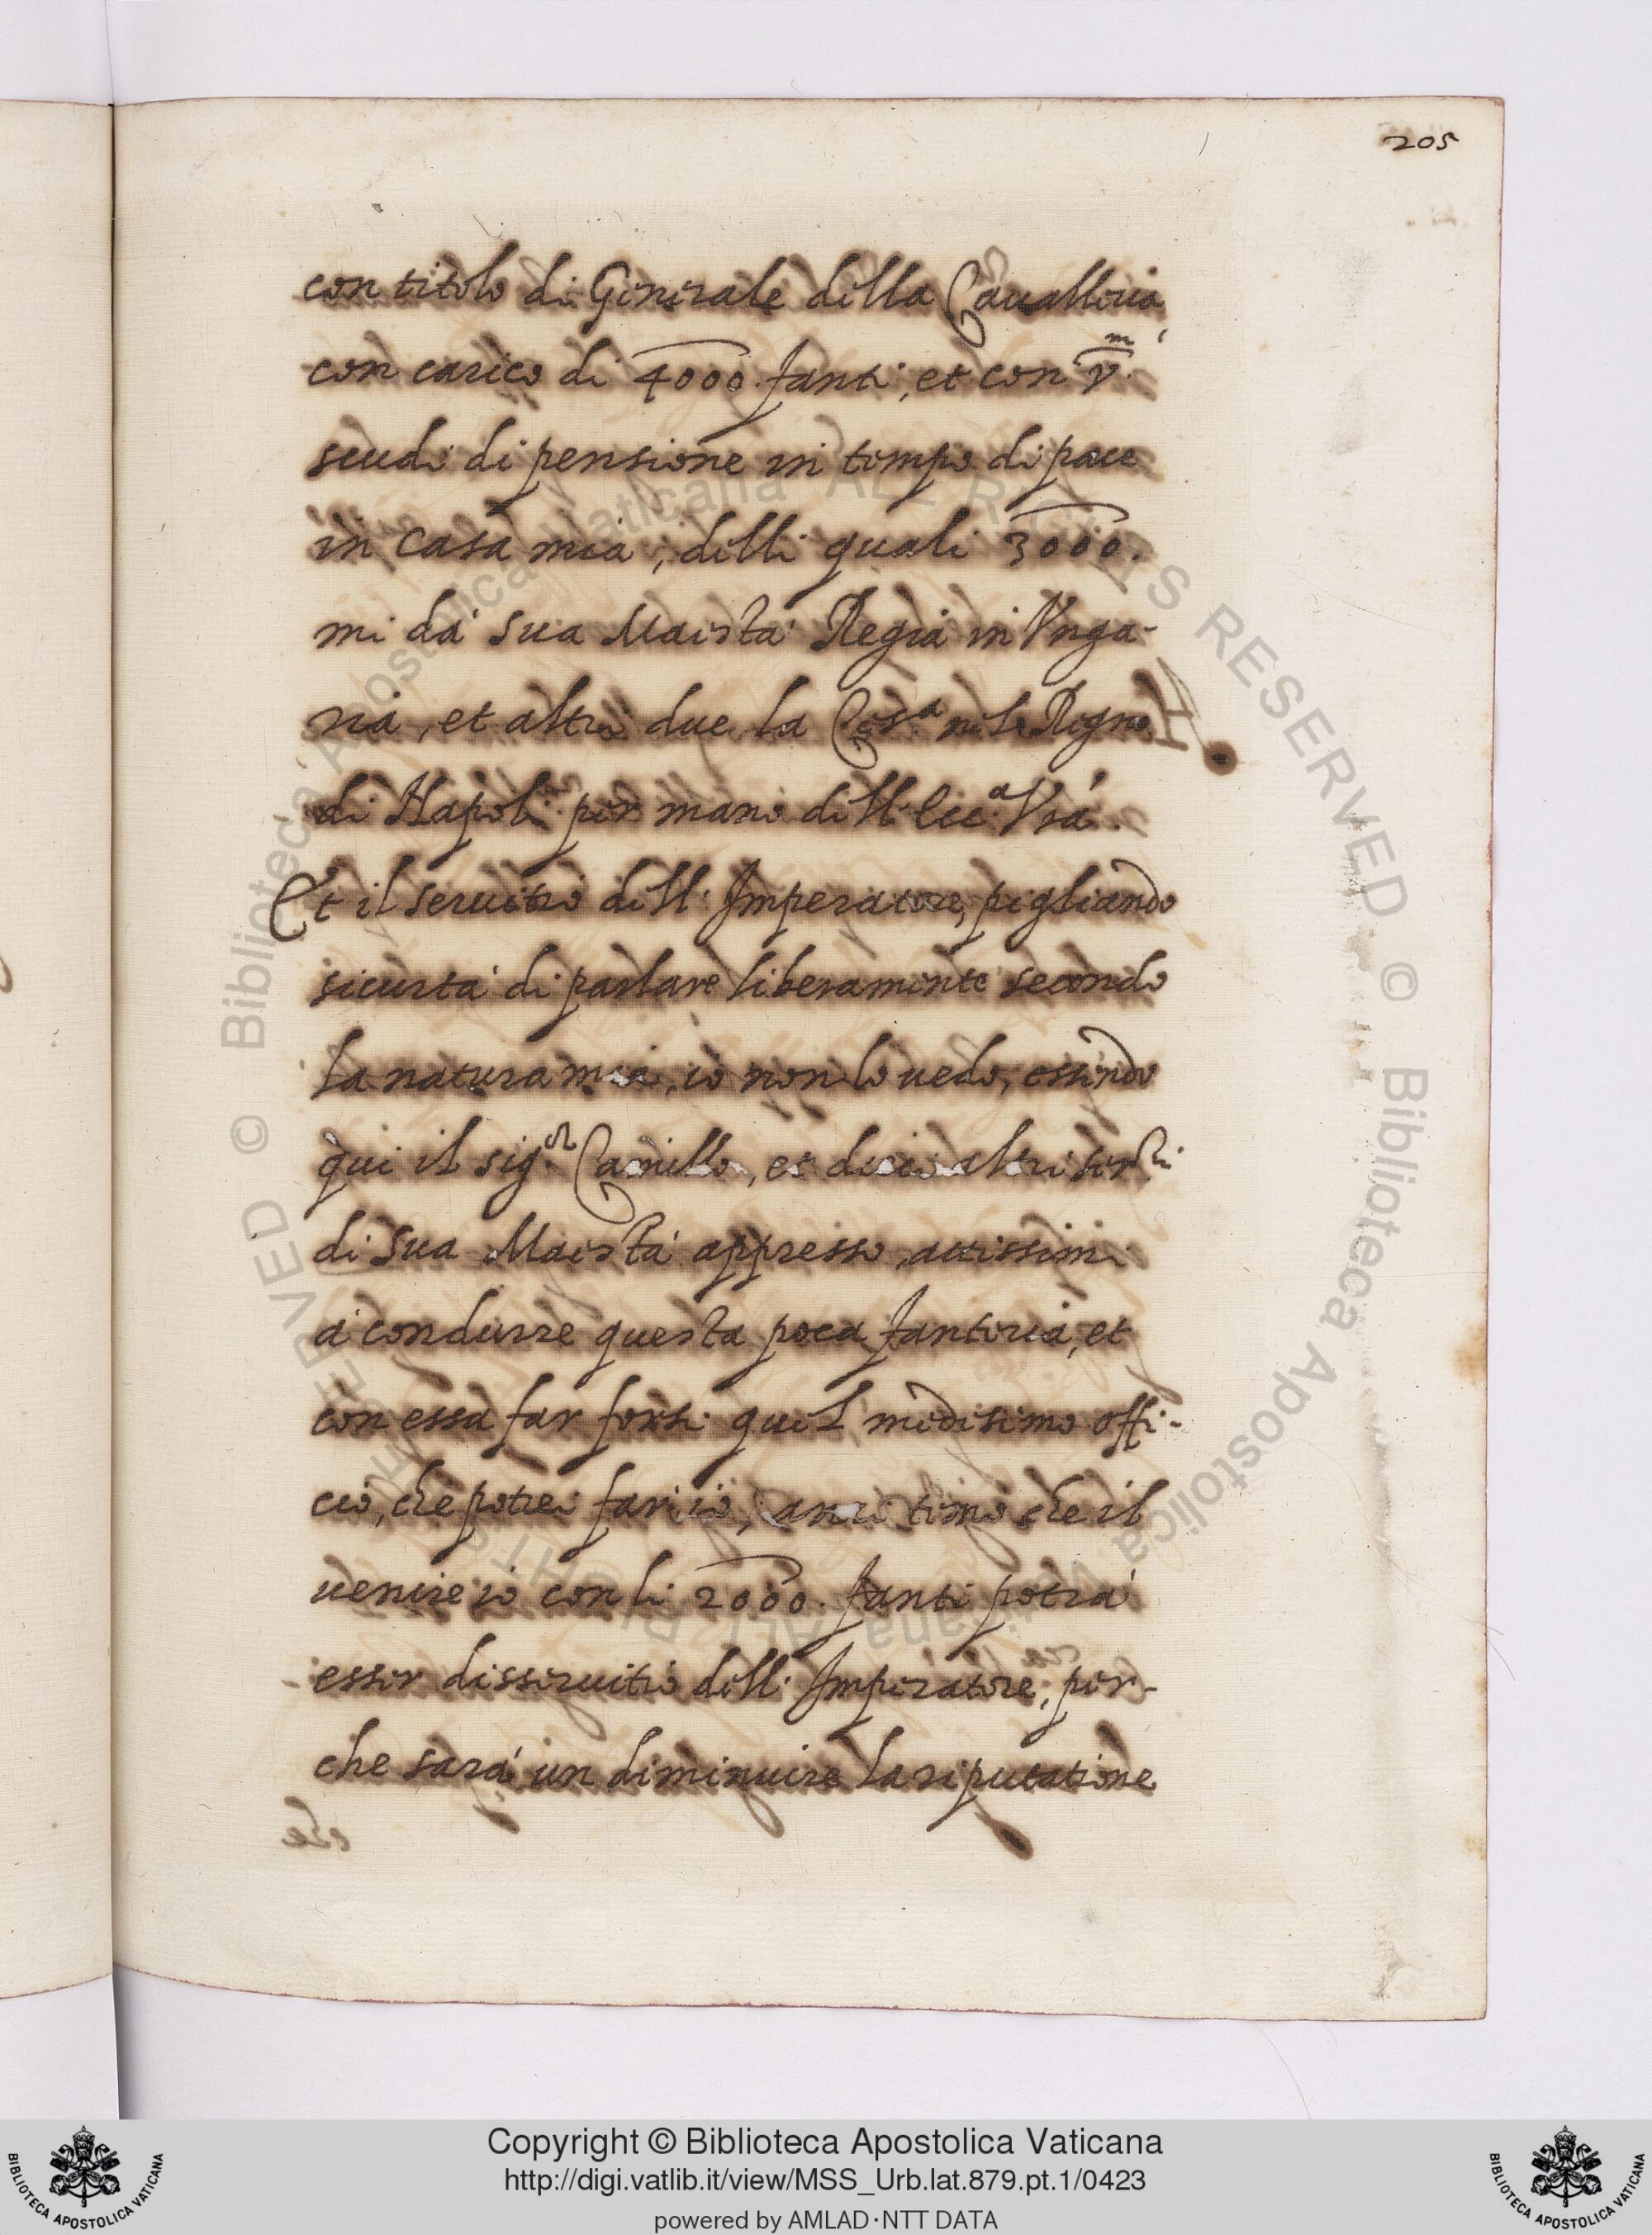 205
con titolo di Generale della Cavalleria,
con carico di 4000. fanti, et con v̅ᵐ.
scudi di pensione in tempo di pace
in casa mia, delli quali 3000.
mi da' Sua Maestà Regia in Vnga-
ria, et altri due la Ces.ª nel Regno
di Napoli per mano dell' Ecc.ª Vrã.
Et il seruitio dell' Imperatore, pigliando
sicurtà di parlare liberamente secondo
la natura mia, io non lo uedo, essendo
qui il sig.ᵒʳ Camillo, et dieci altri ser.ʳⁱ
di Sua Maestà appresso, attissimi
à condurre questa poca fanteria, et
con essa far forsi quel medesimo offi-
cio, che potrei far io, anzi temo che il
uenire io con li 2000. fanti potrà
esser disseruitio dell' Imperatore, per-
che sarà un diminuire la riputatione
© Biblioteca Apostolica Vaticana ALL RIGHTS RESERVED
© Biblioteca Apostolica Vaticana ALL RIGHTS RESERVED
Copyright © Biblioteca Apostolica Vaticana
http://digi.vatlib.it/view/MSS_Urb.lat.879.pt.1/0423
powered by AMLAD·NTT DATA
BIBLIOTECA APOSTOLICA VATICANA
BIBLIOTECA APOSTOLICA VATICANA